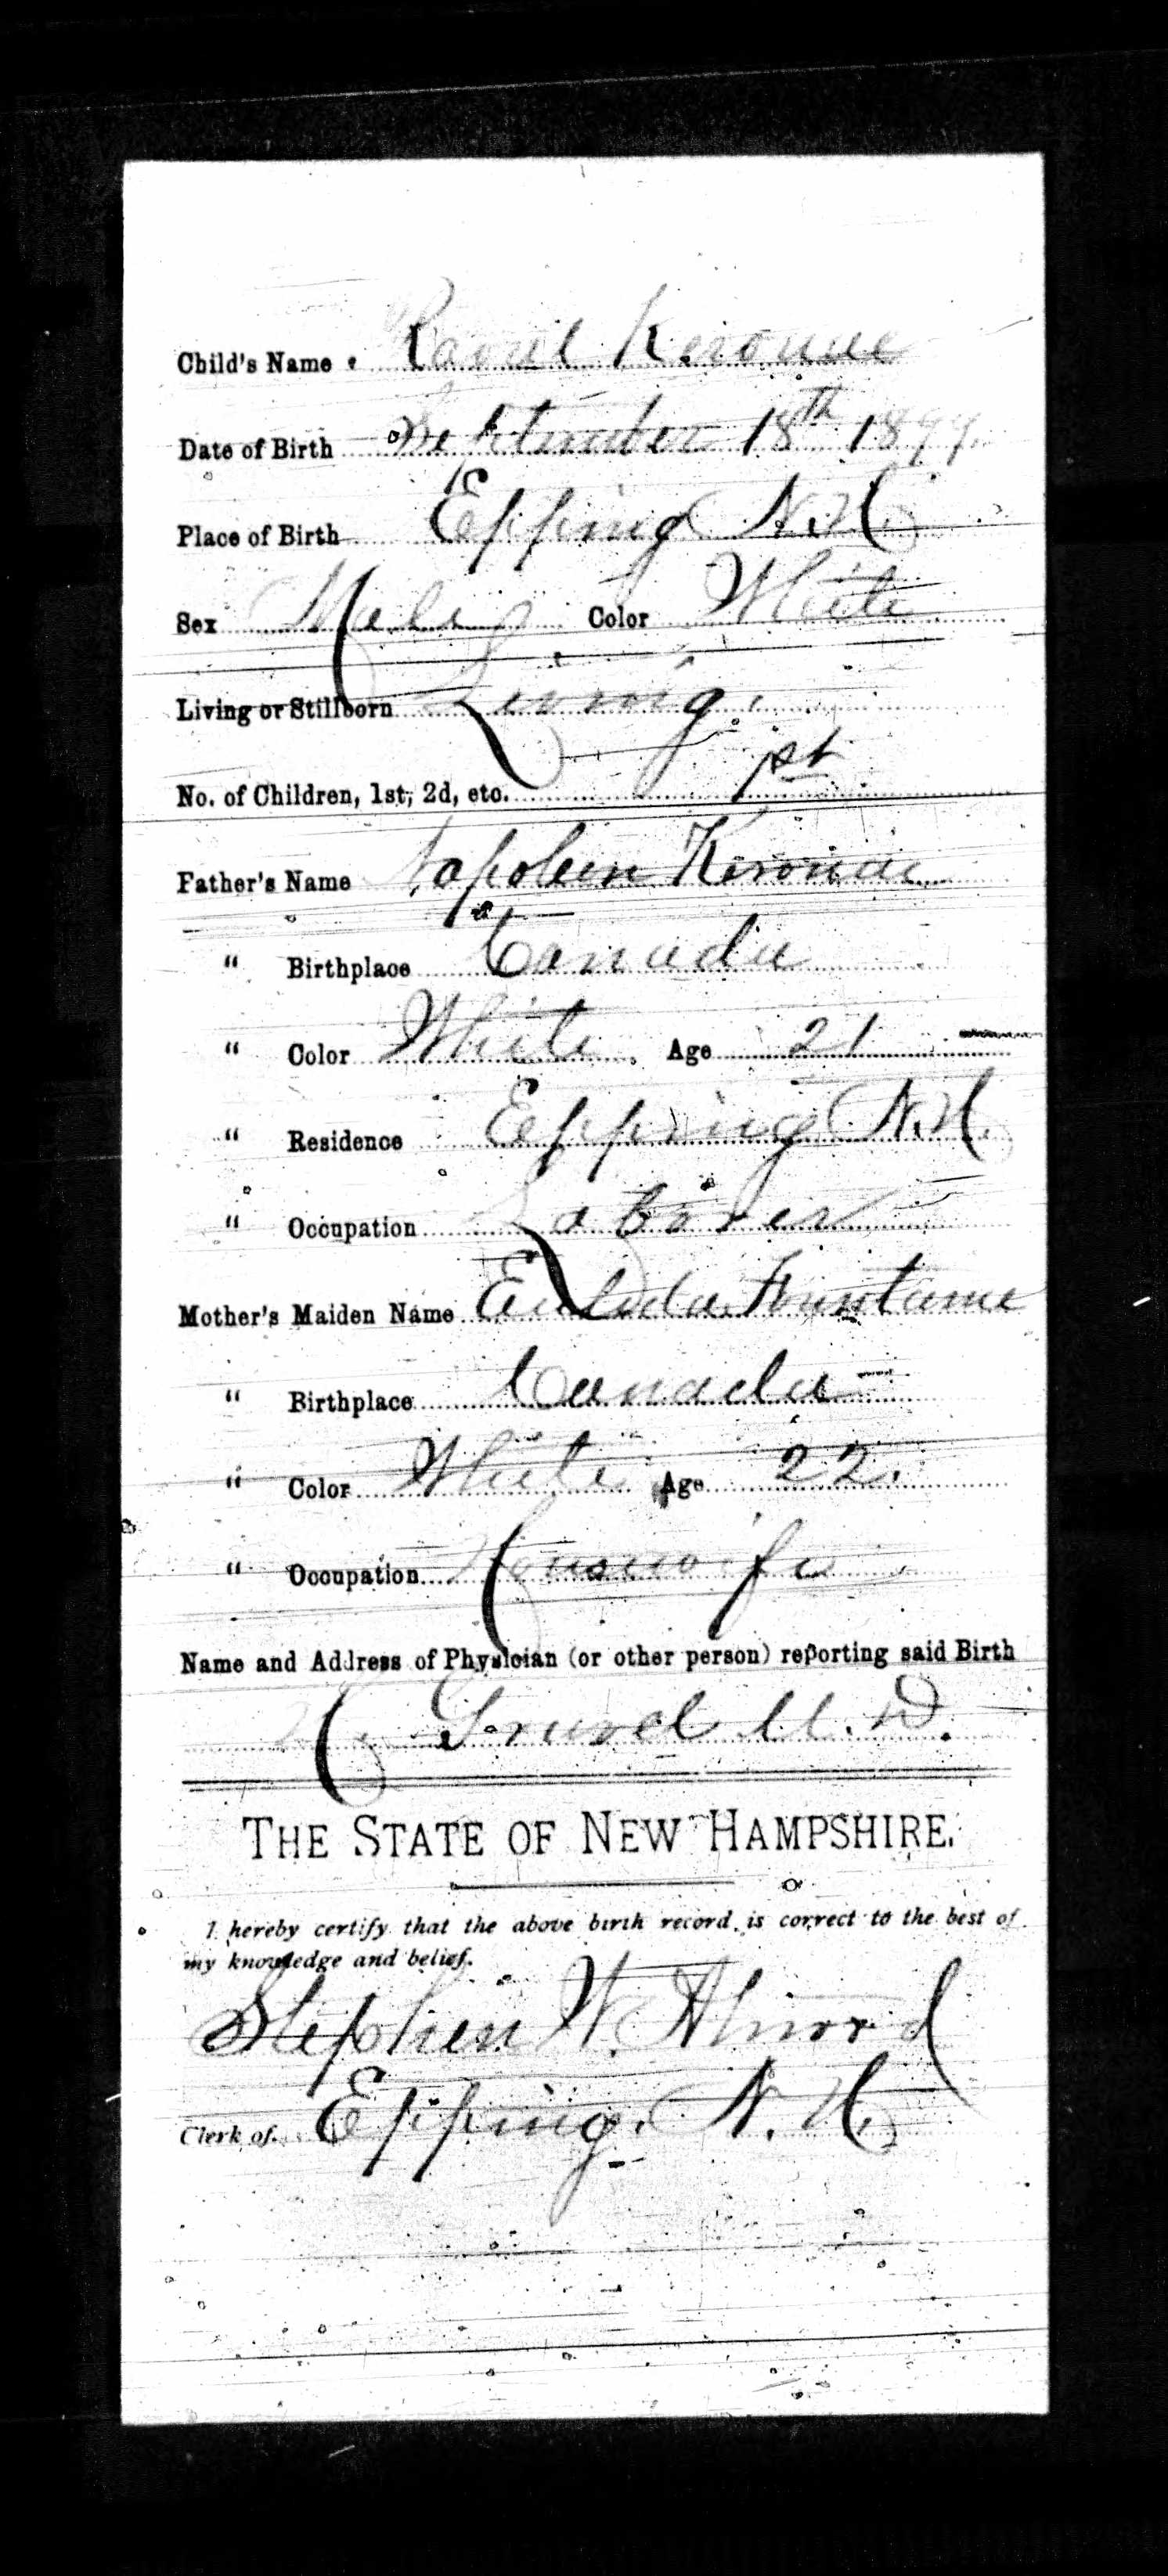 Child's Name Raoul Kerouac
Date of Birth September 18th 1899
Place of Birth Epping N.H.
Sex Male Color White
Living or Stillborn Living.
No. of Children, 1st, 2d, etc. 1st
Father's Name Napoleon Kerouac
" Birthplace Canada
" Color White Age 21
" Residence Epping N.H.
" Occupation Laborer
Mother's Maiden Name Fountaine
" Birthplace Canada
" Color White Age 22.
" Occupation Housewife
Name and Address of Physician (or other person) reporting said Birth
M.D.
THE STATE OF NEW HAMPSHIRE.
I hereby certify that the above birth record is correct to the best of
my knowledge and belief.
Stephen W.
Clerk of Epping, N.H.